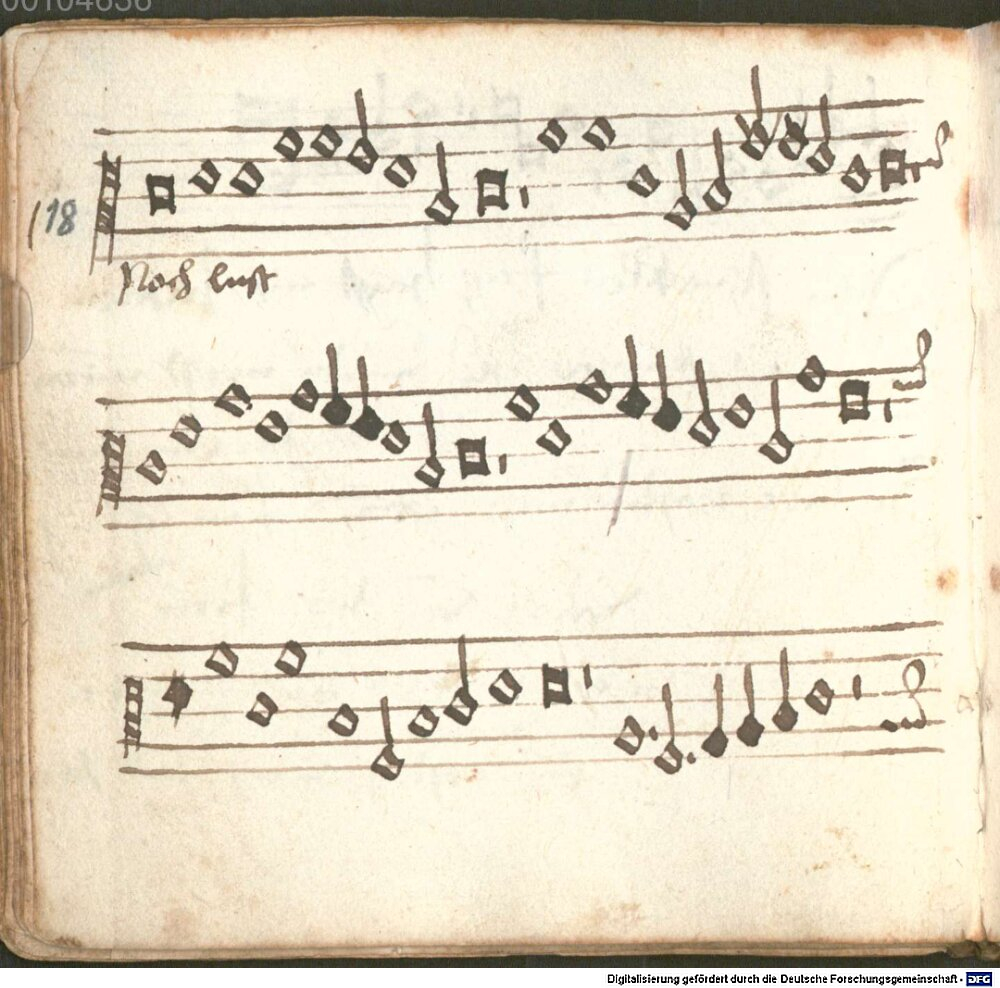 00104636
118
Noch lust
Digitalisierung gefördert durch die Deutsche Forschungsgemeinschaft - DFG